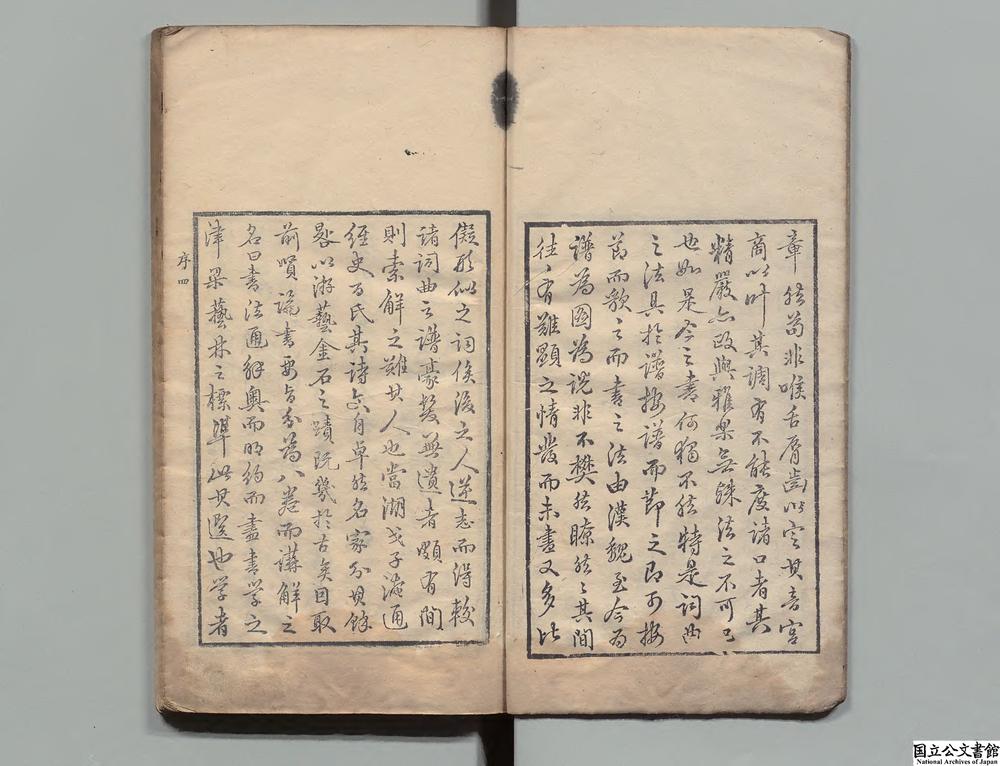 章然苟非喉舌脣齒以定其音宮
商以叶其調有不能度諸口者其
精嚴亦改興雅果無銖法之不可已
也如是今之書何獨不然特是詞曲
之法具於譜按譜而節之即可按
節而歌之而書之法由漢魏至今為
譜為圖為說非不樊然瞭然々其間
往有難顯之情發而未盡又多比
儗形似之詞俟後之人逆志而得較
諸詞曲之譜豪髮無遺者頗有間
則索解之難其人也當湖戈子淹通
經史百氏其詩亦自卓然名家分其餘
晷以游藝金石之蹟既幾於古矣因取
前賢論書要旨分為八卷而講解之
名曰書法通解奧而明約而盡書學之
津梁藝林之標準此其選也学者
序四
国立公文書館
National Archives of Japan